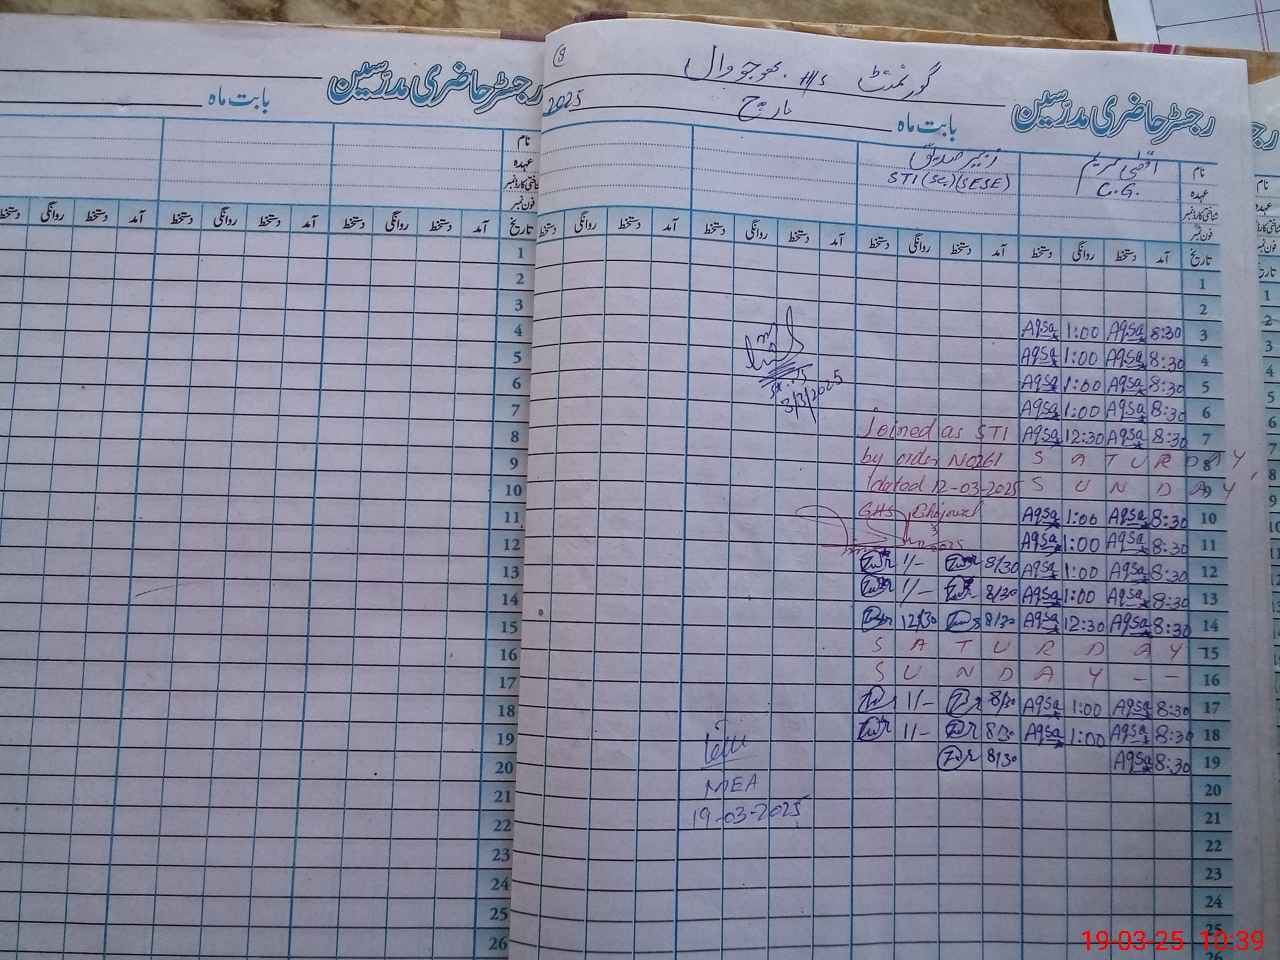 رجسٹر حاضری مدرّسین
بابت ماہ
نام
عہدہ
شناختی کارڈ نمبر
فون نمبر
تاریخ آمد دستخط روانگی دستخط آمد دستخط روانگی دستخط آمد دستخط روانگی دستخط
1
2
3
4
5
6
7
8
9
10
11
12
13
14
15
16
17
18
19
20
21
22
23
24
25
26
9
گورنمنٹ H/S بھوجووال
رجسٹر حاضری مدرّسین
بابت ماہ مارچ 2025
نام اقصٰی مریم زبیر صدیق
عہدہ C.G. STI (Sc) (SESE)
شناختی کارڈ نمبر
فون نمبر
تاریخ آمد دستخط روانگی دستخط آمد دستخط روانگی دستخط آمد دستخط روانگی دستخط آمد دستخط روانگی دستخط
1
2
3 8:30 Aqsa 1:00 Aqsa
4 8:30 Aqsa 1:00 Aqsa
5 8:30 Aqsa 1:00 Aqsa
3/3/2025
6 8:30 Aqsa 1:00 Aqsa
7 8:30 Aqsa 12:30 Aqsa
Joined as STI
8 SATURDAY
by order No261
9 SUNDAY
dated 12-03-2025
10 8:30 Aqsa 1:00 Aqsa
GHS Bhojowal
11 8:30 Aqsa 1:00 Aqsa
12 8:30 Aqsa 1:00 Aqsa 8/30 1/-
13 8:30 Aqsa 1:00 Aqsa 8/30 1/-
14 8:30 Aqsa 12:30 Aqsa 8/30 12/30
15 SATURDAY
16 SUNDAY - -
17 8:30 Aqsa 1:00 Aqsa 8/30 1/-
18 8:30 Aqsa 1:00 Aqsa 8/30 1/-
19 8:30 Aqsa 8/30
20
MEA
21
19-03-2025
22
23
24
25
26
19-03-25 10:39